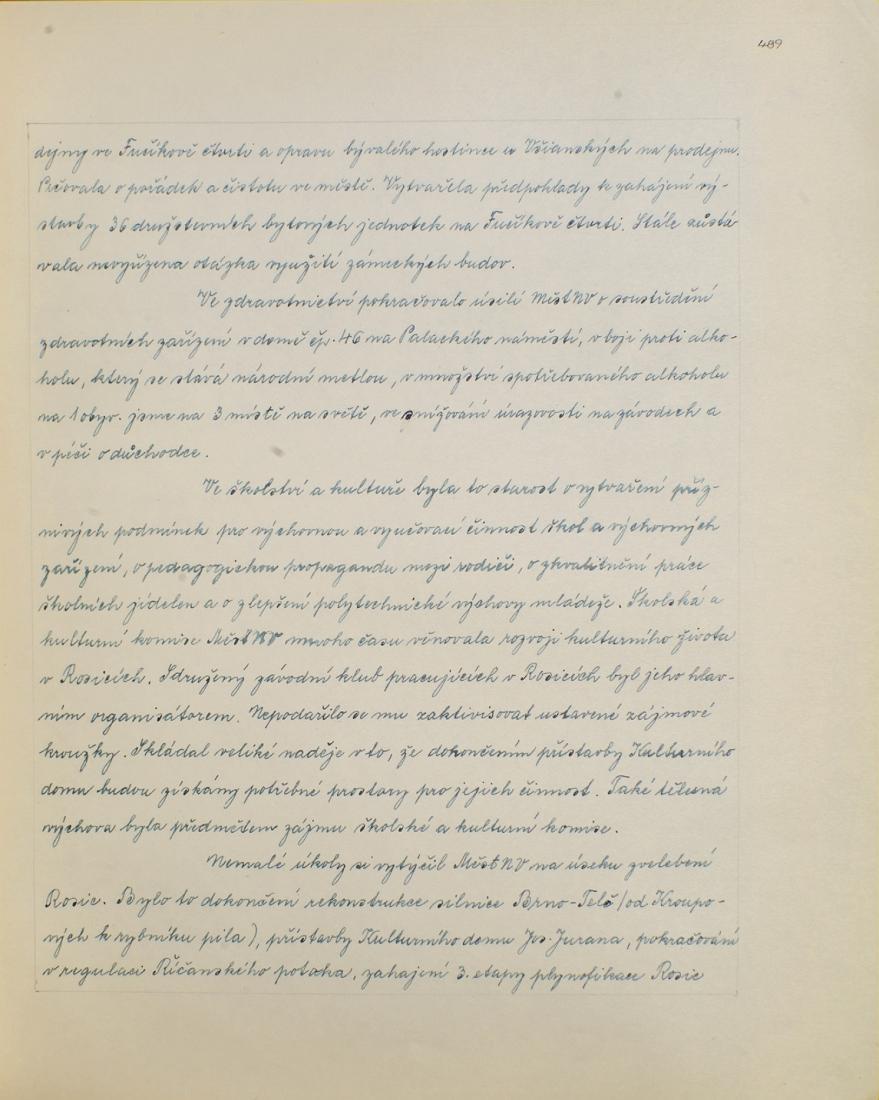 489
dejny ve Fučíkově čtvrti a opravu bývalého hostince u Všianských na prodejnu.
Pečovala o pořádek a čistotu ve městě. Vytvařela předpoklady k zahájení vý-
stavby 36 družstevních bytových jednotek na Fučíkově čtvrti. Stále zůstá
vala nevyřízena otázka využití zámeckých budov.
Ve zdravotnictví pokračovalo úsilí MěstNV o soustředění
zdravotních zařízení v domě čp. 46 na Palackého náměstí, v boji proti alko-
holu, který se stává národní metlou, v množství spotřebovaného alkoholu
na 1 obyv. jsme na 3 místě na světě, ve snižování úrazovosti na závodech a
v péči o důchodce.
Ve školství a kultuře byla to starost o vytvaření příz-
nivých podmínek pro výchovnou a vyučovací činnost škol a výchovných
zařízení, o pedagogickou propagandu mezi rodiči, o zkvalitnění práce
školních jídelen a o zlepšení polytechnické výchovy mládeže. Školská a
kulturní komise MěstNV mnoho času věnovala rozvoji kulturního života
v Rosicích. Sdružený závodní klub pracujících v Rosicích byl jeho hlav-
ním organisátorem. Nepodařilo se mu zaktivisovat ustavené zájmové
kroužky. Skládal veliké naděje v to, že dokončením přístavby Kulturního
domu budou získány potřebné prostory pro jejich činnost. Také tělesná
výchova byla předmětem zájmu školské a kulturní komise.
Nemalé úkoly si vytýčil MěstNV na úseku zvelebení
Rosic. Bylo to dokončení rekonstrukce silnice Brno-Telč (od Kroupo-
vých k rybníku pila), přístavby Kulturního domu Jos. Jurana, pokračování
v regulaci Říčanského potoka, zahajení 3. etapy plynofikace Rosic